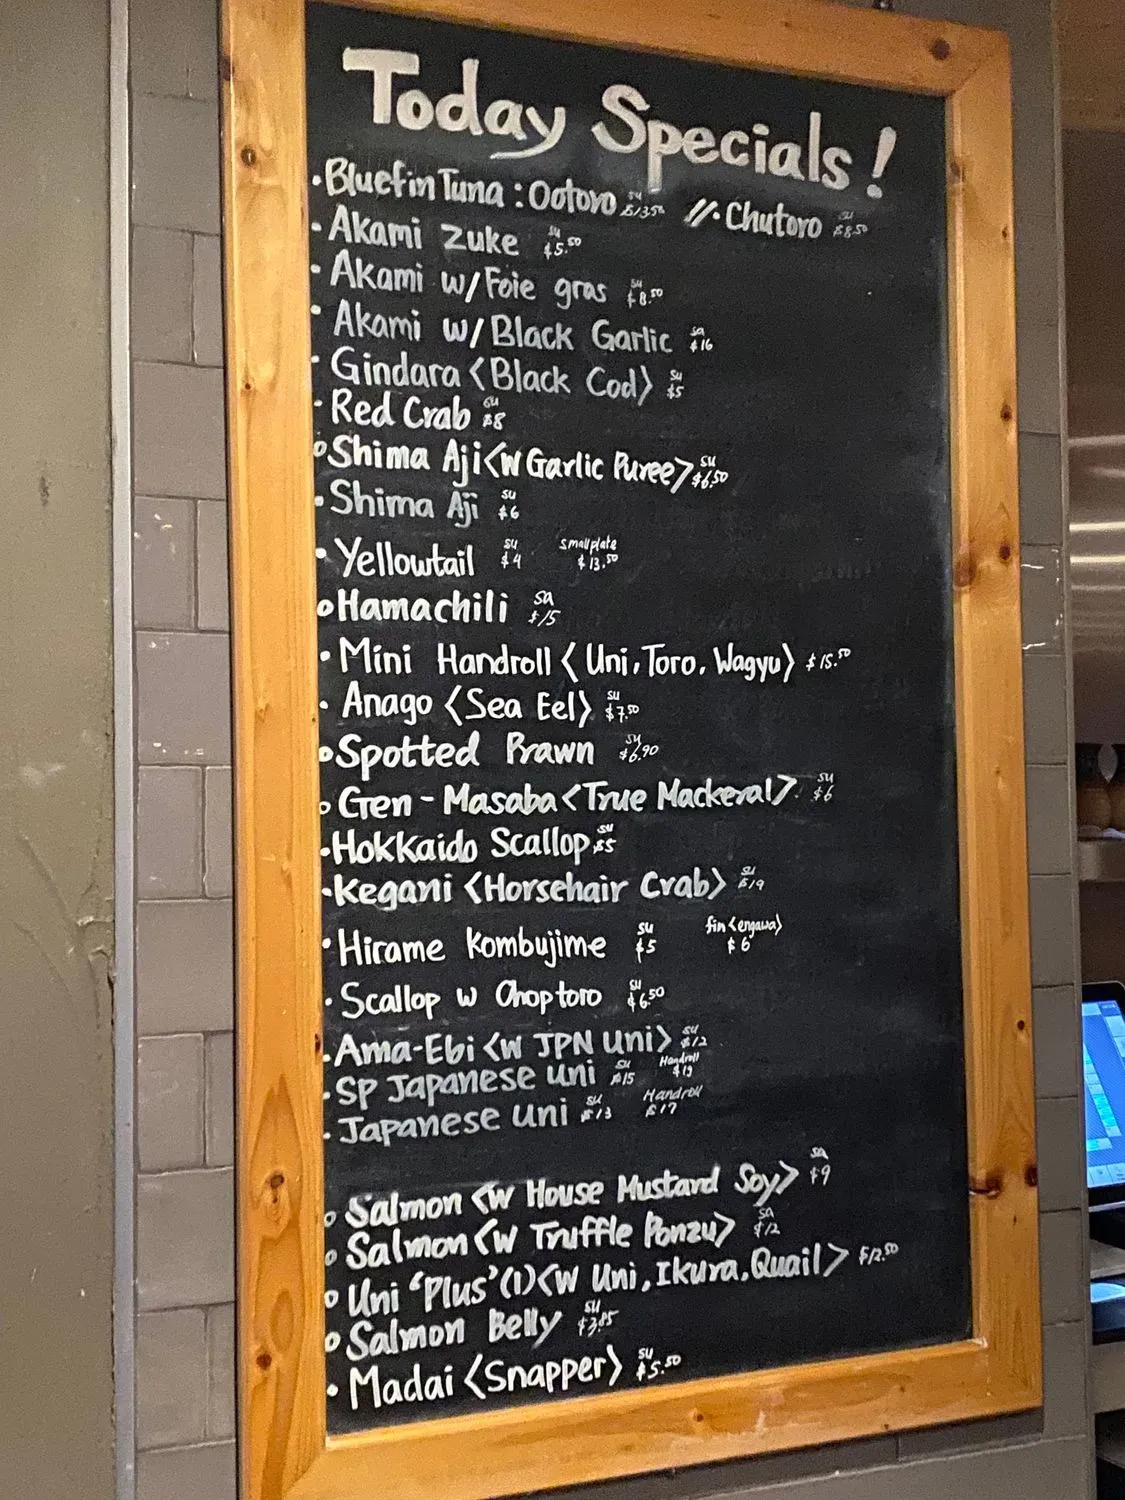 Today Specials!
• Bluefin Tuna : Ootoro su $13.50 //• Chutoro su $8.50
• Akami Zuke su $5.50
• Akami w/Foie gras su $8.50
• Akami w/Black Garlic sa $16
• Gindara <Black Cod> su $5
• Red Crab su $8
• Shima Aji <w Garlic Puree> su $6.50
• Shima Aji su $6
• Yellowtail su $4 small plate $13.50
• Hamachili sa $15
• Mini Handroll <Uni, Toro, Wagyu> $15.50
• Anago <Sea Eel> su $7.50
• Spotted Prawn su $6.90
• Gen-Masaba <True Mackeral> su $6
• Hokkaido Scallop su $5
• Kegani <Horsehair Crab> su $19
• Hirame Kombujime su $5 fin <engawa> $6
• Scallop w Chop toro su $6.50
• Ama-Ebi <w JPN Uni> su $12
• SP Japanese uni su $15 Handroll $19
• Japanese uni su $13 Handroll $17
• Salmon <w House Mustard Soy> sa $9
• Salmon <w Truffle Ponzu> sa $12
• Uni 'Plus' (1) <w Uni, Ikura, Quail> $12.50
• Salmon Belly su $3.85
• Madai <Snapper> su $5.50